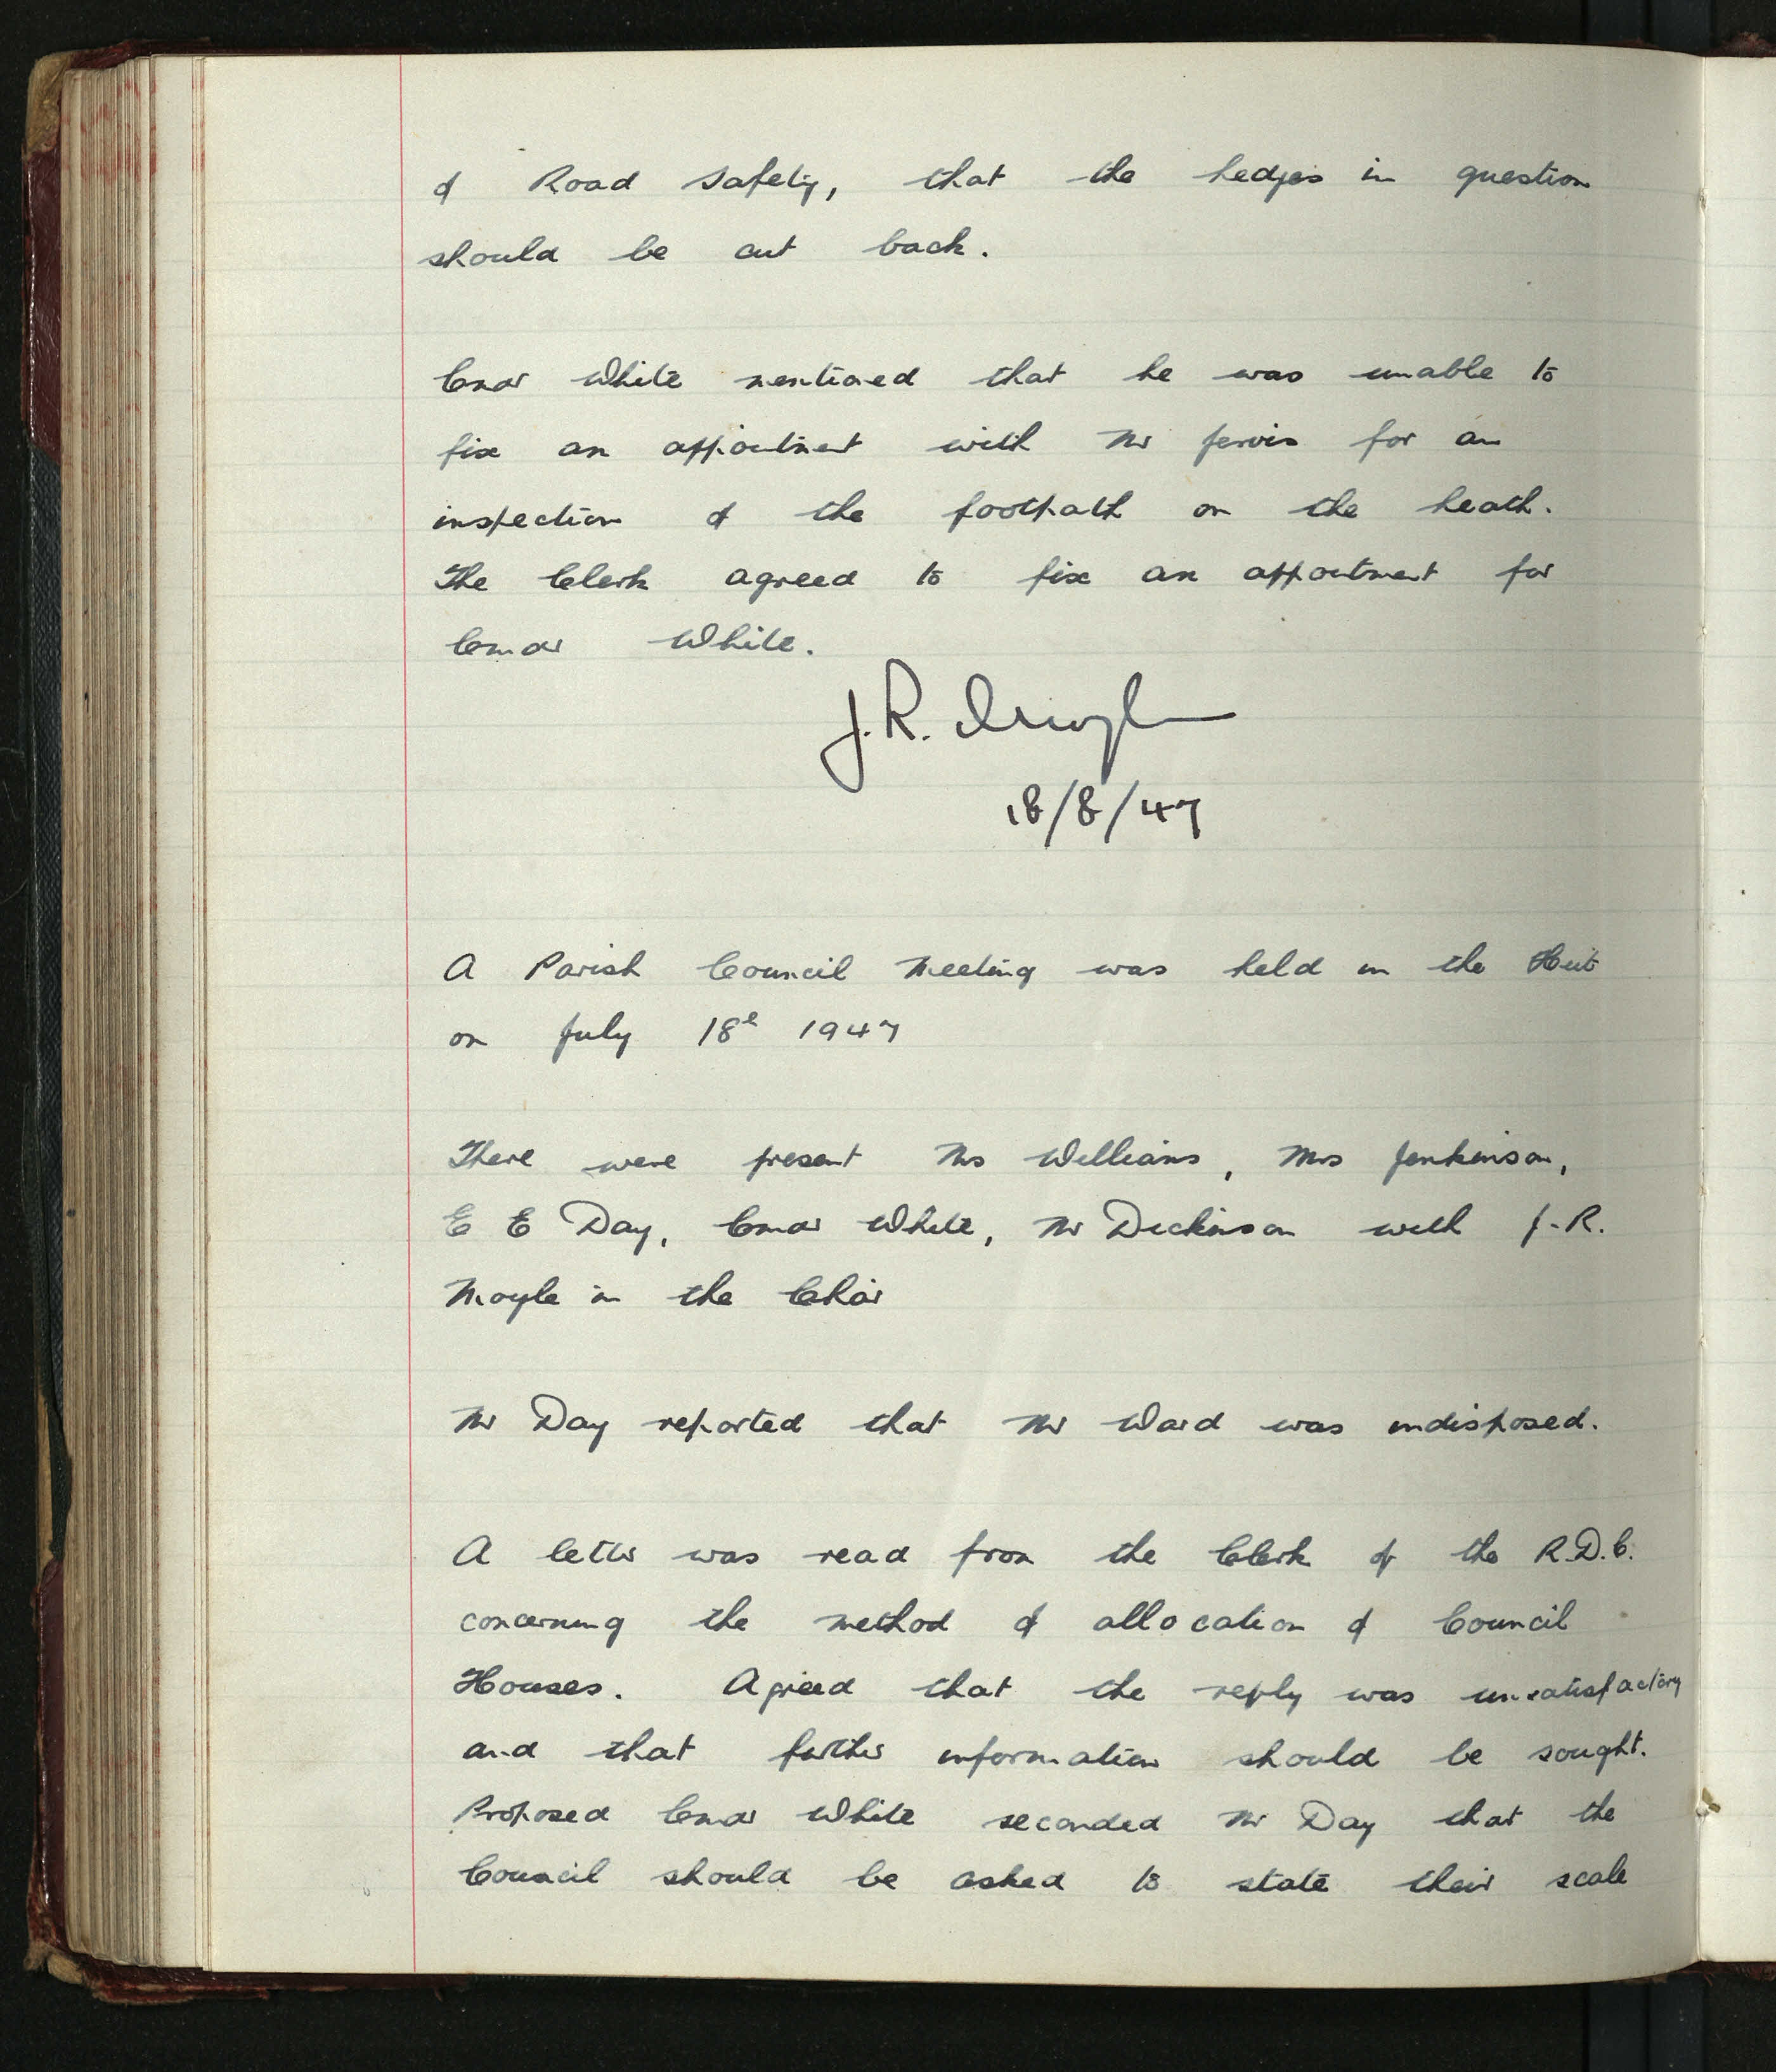 of Road Safety, that the hedges in question
should be cut back.
Cmdr White mentioned that he was unable to
fix an appointment with Mr Jervis for an
inspection of the footpath on the heath.
The Clerk agreed to fix an appointment for
Cmdr White.
J.R. Moyle
18/8/47
A Parish Council Meeting was held in the Hut
on July 18th 1947
There were present Mrs Williams, Mrs Jenkinson,
E E Day, Cmdr White, Mr Dickinson with J.R.
Moyle in the Chair
Mr Day reported that Mr Ward was indisposed.
A letter was read from the Clerk of the R.D.C.
concerning the method of allocation of Council
Houses. Agreed that the reply was unsatisfactory
and that further information should be sought.
Proposed Cmdr White seconded Mr Day that the
Council should be asked to state their scale